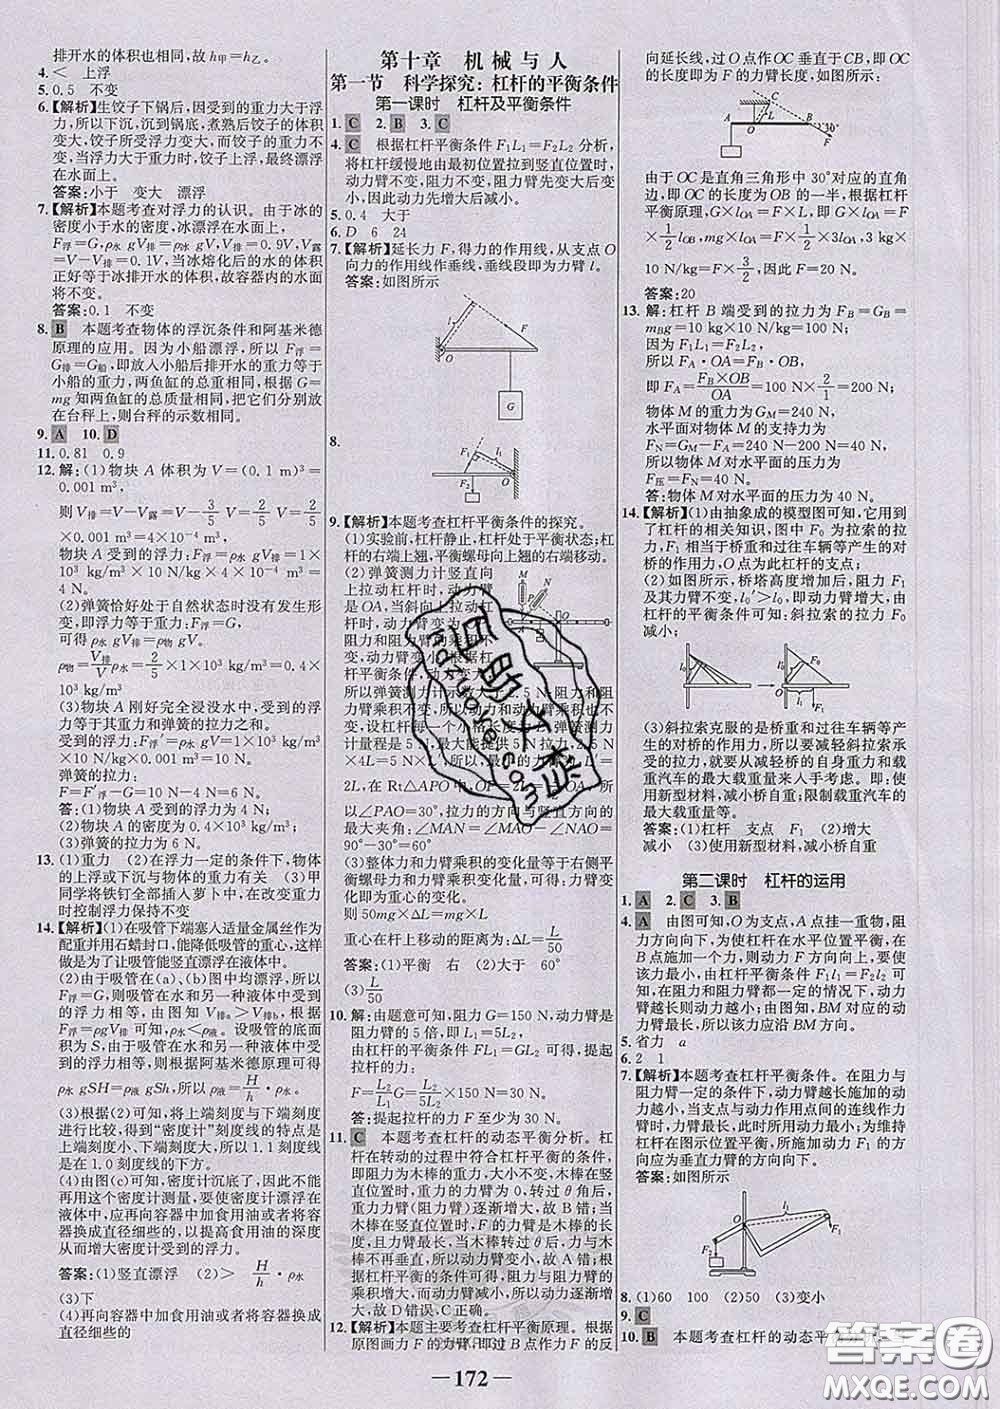 排开水的体积也相同,故 h甲=h乙。
4.<　上浮
5.0.5　不变
6.【解析】生饺子下锅后,因受到的重力大于浮
力,所以下沉,沉到锅底,煮熟后饺子的体积
变大,饺子所受浮力变大,而饺子的重力不
变,当浮力大于重力时,饺子上浮,最终漂浮
在水面上。
答案:小于　变大　漂浮
7.【解析】本题考查对浮力的认识。由于冰的
密度小于水的密度,冰漂浮在水面上,
F浮=G,ρ水 gV排=ρ冰 gV,V排=0.9V,V露
=V-V排=0.1V,当冰熔化后的水的体积
正好等于冰排开水的体积,故容器内的水面
将不变。
答案:0.1　不变
8. B　本题考查物体的浮沉条件和阿基米德
原理的应用。因为小船漂浮,所以 F浮=G船,
即放入小船后排开水的重力等于
小船的重力,两鱼缸的总重相同,根据 G=
mg 知两鱼缸的总质量相同,把它们分别放
在台秤上,则台秤的示数相同。
9. A　10. D
11.0.81　0.9
12.解:(1)物块 A 体积为 V=(0.1 m)³=
0.001 m³,
则 V排=V-V露=V-3/5 V=2/5 V=2/5×
0.001 m³=4×10⁻⁴ m³,
物块 A 受到的浮力:F浮=ρ水 gV排=1×10³
kg/m³×10 N/kg×4×10⁻⁴ m³=
4 N。
(2)弹簧恰好处于自然状态时没有发生形
变,即浮力等于重力:F浮=G,
可得 ρ水 gV排=ρ物 gV。
ρ物=V排/V ρ水=2/5×1×10³ kg/m³=0.4×10³
kg/m³
(3)物块 A 刚好完全浸没水中,受到的浮
力等于其重力和弹簧的拉力之和。
受到的浮力:F浮′=ρ水 gV=1×10³ kg/m³
×10 N/kg×0.001 m³=10 N
弹簧的拉力:
F=F浮′-G=10 N-4 N=6 N。
答:(1)物块 A 受到的浮力为 4 N;
(2)物块 A 的密度为 0.4×10³ kg/m³;
(3)弹簧的拉力为 6 N。
13.(1)重力　(2)在浮力一定的条件下,物体
的上浮或下沉与物体的重力有关　(3)甲
同学将铁钉全部插入萝卜中,在改变重力
时控制浮力保持不变
14.【解析】(1)在吸管下端塞入适量金属丝作为
配重并用石蜡封口,能降低吸管的重心,这样
做是为了让吸管能竖直漂浮在液体中。
(2)由于吸管在(a)、(b)图中均漂浮,所以
F浮=G,则吸管在水和另一种液体中受到
的浮力相等,由图知 V排a>V排b,根据
F浮=ρ液 gV排 可知,ρ水<ρ液。设吸管的底面
积为 S,由于吸管在水和另一种液体中受到
的浮力相等,所以根据阿基米德原理可得
ρ水 gSH=ρ液 gSh,所以 ρ液=H/h·ρ水
(3)根据(2)可知,将上端刻度与下端刻度
进行比较,得到“密度计”刻度线的特点是
上端刻度小、下端刻度大,所以 1.1 刻度线
是在 1.0 刻度线的下方。
(4)由图(c)可知,密度计沉底了,因此不能
再用这个密度计测量,要使密度计漂浮在
液体中,应再向容器中加食用油或者将容器
换成直径细些的,以提高食用油的深度
从而增大密度计受到的浮力。
答案:(1)竖直漂浮　(2)>　H/h·ρ水
(3)下
(4)再向容器中加食用油或者将容器换成
直径细些的
第十章　机械与人
第一节　科学探究:杠杆的平衡条件
第一课时　杠杆及平衡条件
1. C　2. B　3. C
4. C　根据杠杆平衡条件 F₁L₁=F₂L₂ 分析,
将杠杆缓慢地由最初位置拉到竖直位置时,
动力臂不变,阻力不变,阻力臂先变大后变
小,因此动力先增大后减小。
5.0.4　大于
6.D　6　24
7.【解析】延长力 F,得力的作用线,从支点 O
向力的作用线作垂线,垂线段即为力臂 l。
答案:如图所示
l
F
O
G
8.
l₁
O
F₁
9.【解析】本题考查杠杆平衡条件的探究。
(1)实验前,杠杆静止,杠杆处于平衡状态;杠
杆的右端上翘,平衡螺母向上翘的右端移动。
(2)弹簧测力计竖直向
上拉动杠杆时,动力臂
是 OA,当斜向上拉动杠
杆时,动力臂变为
阻力和阻力臂不变,
而动力臂变小,根据杠
杆平衡条件,动力变大,
所以弹簧测力计示数大于 2.5 N,阻力和阻
力臂乘积不变,所以动力和动力臂乘积也不
变,设杠杆每一个小格长度为 L,弹簧测力
计量程是 5 N,最大能提供 5 N 拉力,2.5 N
×4L=5 N×L′,所以此时的力臂为 L′=
2L,在 Rt△APO 中,OP=2L=
以∠PAO=30°,拉力的方向与竖直方向的
最大夹角为:∠MAN=∠MAO-∠NAO=
90°-30°=60°
(3)整体力和力臂乘积的变化量等于右侧平
衡螺母力和力臂乘积的变化量,
即 50mg×ΔL=mg×L,
则 50mg×ΔL=mg×L,
重心在杆上移动的距离为:ΔL=L/50
答案:(1)平衡　右　(2)大于　60°
(3)L/50
10.解:由题意可知,阻力 G=150 N,动力臂是
阻力臂的 5 倍,即 L₁=5L₂,
由杠杆的平衡条件 FL₁=GL₂ 可得,提起
拉杆的力:
F=L₂/L₁ G=L₂/5L₂×150 N=30 N。
答:提起拉杆的力 F 至少为 30 N。
11. C　本题考查杠杆的动态平衡分析。杠
杆在转动的过程中符合杠杆平衡的条件,
即阻力为木棒的重力,大小不变,木棒在竖
直位置时,重力的力臂为 0,转过 θ 角后,
重力力臂(阻力臂)逐渐增大,故 B 错;当木
棒在竖直位置时,F 的力臂是木棒的长度,
此时力臂最长,当木棒转过 θ 角时,木棒
不再竖直,所以动力臂变小,故 A 错;根据
杠杆平衡的条件可得,阻力与阻力臂的
乘积增大,而动力臂减小,所以动力逐渐增
大,故 D 错误,C 正确。
12.【解析】本题主要考查杠杆平衡原理。根据
原图画力 F 的力臂,即过支点 O 作力 F 的反
向延长线,过 O 点作 OC 垂直于 CB,即 OC
的长度即为 F 的力臂长度,如图:
A
C
L
O
B
30°
F
由于 OC 是直角三角形中 30°对应的直角
边,即 OC 的长度为 OB 的一半,根据杠杆
平衡原理,G×lOA=F×L,即 G×lOA=F
×1/2 lOB,mg×lOA=F×1/2×3lOA,3 kg×
10 N/kg=F×3/2,因此 F=20 N。
答案:20
13.解:杠杆 B 端受到的拉力 FB=GB=
mBg=10 kg×10 N/kg=100 N;
因为 F₁L₁=F₂L₂,
所以 FA·OA=FB×OB;
即 FA=FB×OB/OA=100 N×2/1=200 N,
物体 M 的重力为 GM=240 N,
水平面对物体 M 的支持力为
FN=GM-FA=240 N-200 N=40 N。
所以物体 M 对水平面的压力为
F压=FN=40 N。
答:物体 M 对水平面的压力为 40 N。
14.【解析】(1)由抽象成的模型图可知,它用
到了杠杆的相关知识,图中 F₀ 为拉索的拉
力,F₁ 相当于桥重和过往车辆等产生的对
桥的作用力,O 点为此杠杆的支点;
(2)如图所示,桥塔高度增加后,阻力 F₁
及其力臂不变,l₀′>l₀,即动力臂增大,由
杠杆的平衡条件可知:斜拉索的拉力 F₀
减小;
(3)斜拉索克服的是桥重和过往车辆等产
生的对桥的作用力,所以要减轻斜拉索承
受的拉力,就应从减轻桥的自重和控制承
载重汽车的最大载重量来人手考虑。即:使
用新型材料,减小桥自重;限制载重汽车的
最大载重量等。
答案:(1)杠杆　支点　F₁　(2)增大
减小　(3)使用新型材料,减小桥自重
第二课时　杠杆的运用
1. A　2. C　3. B
4. A　由图可知,O 为支点,A 点挂一重物,阻
力方向向下,为使杠杆在水平位置平衡,在
B 点施加一个力,则动力方向向上,要使
该力最小,由杠杆平衡条件 F₁l₁=F₂l₂ 可
知,在阻力和阻力臂都一定的情况下,动力
臂越长则动力越小,由图知 BM 对应的动力
臂最长,所以该力应沿 BM 方向。
5.省力　a
6.2　1
7.【解析】本题考查杠杆平衡条件。在阻力与
阻力臂一定的条件下,动力臂越长施加的动
力越小,当支点与动力作用点间的连线作力
臂时,力臂最大,此时动力最小;为维持
杠杆在图示位置平衡,所以动力 F₁ 的方
向应为垂直力臂的方向向下。
答案:如图所示
8.(1)60　100　(2)50　(3)变小
9. C
10. B　本题考查杠杆的动态平
— 172 —
答案圈
MXQE.COM